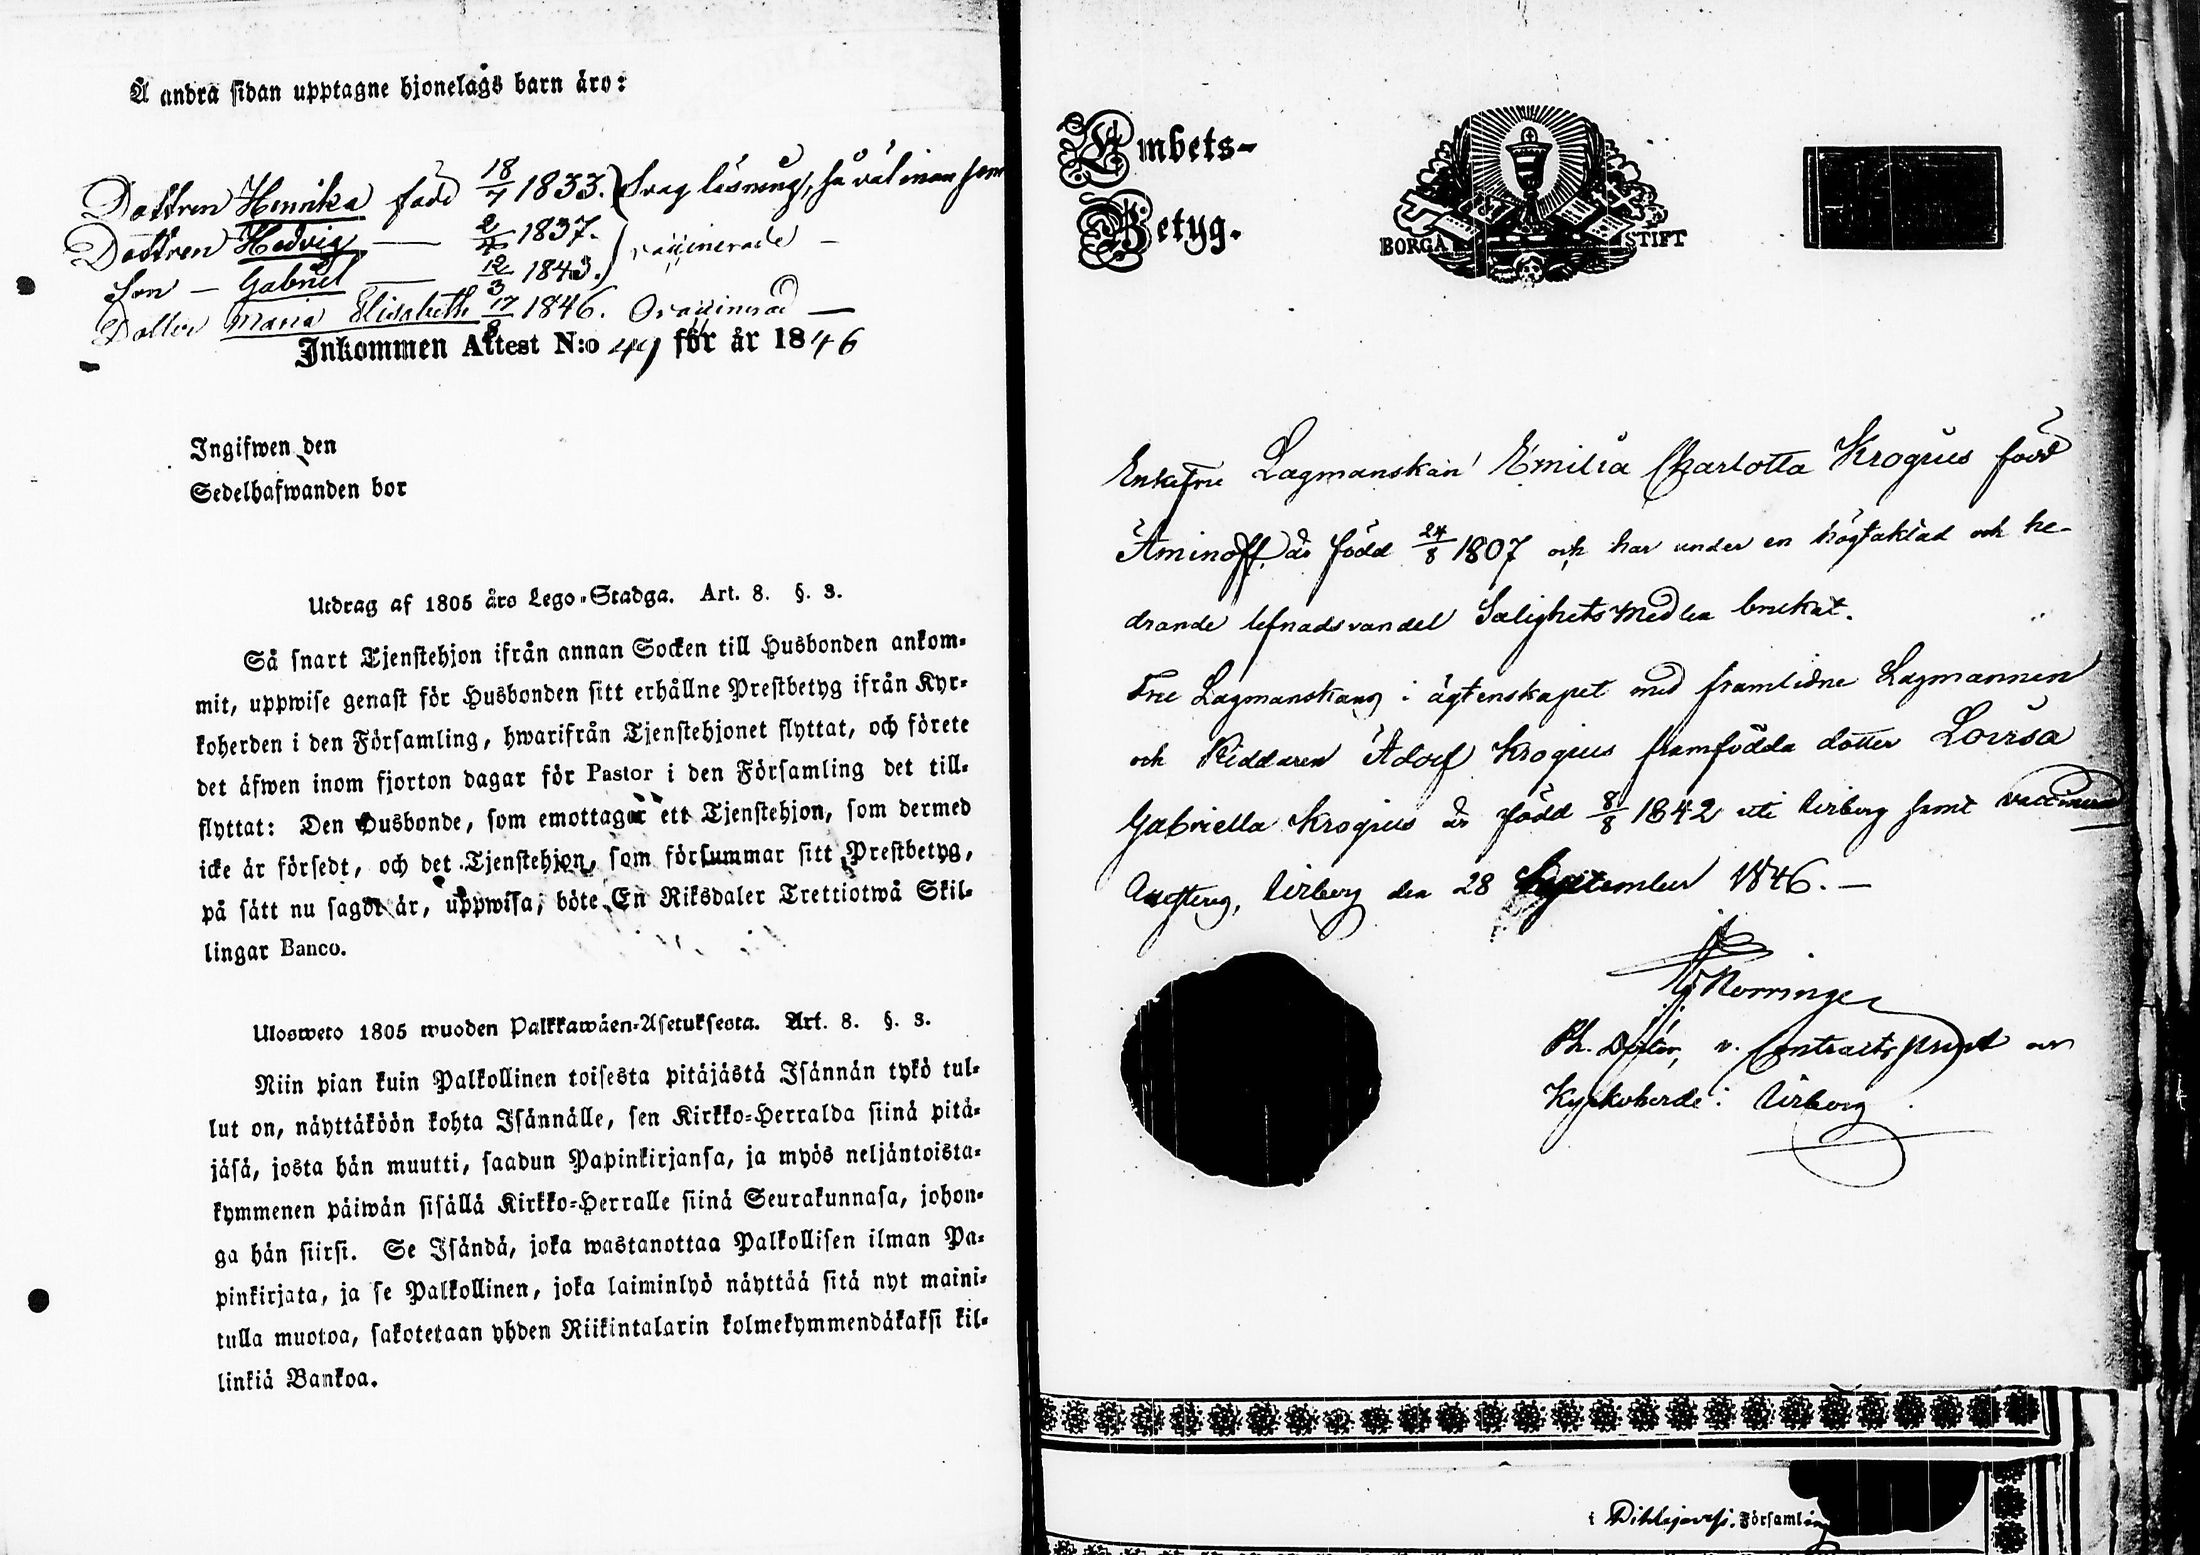 Å andra sidan upptagne hjonelags barn äro:
Dottren Henrika född 18/7 1833. Svag läsning, så väl innan som
Dottren Hedvig — 2/4 1837.
vaccinerade —
Son — Gabriel — 12/3 1843.
Dotter Maria Elisabeth 17/8 1846. Ovaccinerad —
Inkommen Attest N:o 49 för år 1846
Ingifwen den
Sedelhafwanden bor
Utdrag af 1805 års Lego-Stadga. Art. 8. §. 3.
Så snart Tjenstehjon ifrån annan Socken till Husbonden ankom-
mit, uppwise genast för Husbonden sitt erhållne Prestbetyg ifrån Kyr-
koherden i den Församling, hwarifrån Tjenstehjonet flyttat, och förete
det äfwen inom fjorton dagar för Pastor i den Församling det till-
flyttat: Den Husbonde, som emottager ett Tjenstehjon, som dermed
icke är försedt, och det Tjenstehjon, som försummar sitt Prestbetyg,
på sätt nu sagdt är, uppwisa, böte En Riksdaler Trettiotwå Skil-
lingar Banco.
Ulosweto 1805 wuoden Palkkawäen-Asetuksesta. Art. 8. §. 3.
Niin pian kuin Palkollinen toisesta pitäjästä Isännän tykö tul-
lut on, näyttäköön kohta Isännälle, sen Kirkko-Herralda siinä pitä-
jäsä, josta hän muutti, saadun Papinkirjansa, ja myös neljäntoista-
kymmenen päiwän sisällä Kirkko-Herralle siinä Seurakunnasa, johon-
ga hän siirsi. Se Isändä, joka wastanottaa Palkollisen ilman Pa-
pinkirjata, ja se Palkollinen, joka laiminlyö näyttää sitä nyt maini-
tulla muotoa, sakotetaan yhden Riikintalarin kolmekymmendäkaksi kil-
linkiä Bankoa.
Embets-
Betyg.
BORGÅ STIFT
Enkefru Lagmanskan Emilia Charlotta Krogius född
Aminoff, är född 24/8 1807 och har under en högtaktad och he-
drande lefnadsvandel Salighets Medlen brukat.
Fru Lagmanskans i ägtenskapet med framlidne Lagmannen
och Riddaren Adolf Krogius framfödda dotter Lovisa
Gabriella Krogius är född 8/8 1842 uti Wiborg samt vaccinerad
Wiborg den 28 September 1846. —
Ph. Doctor, v. Contracts prost och
Kyrkoherde i Wiborg
i Pihlajavesi Församling